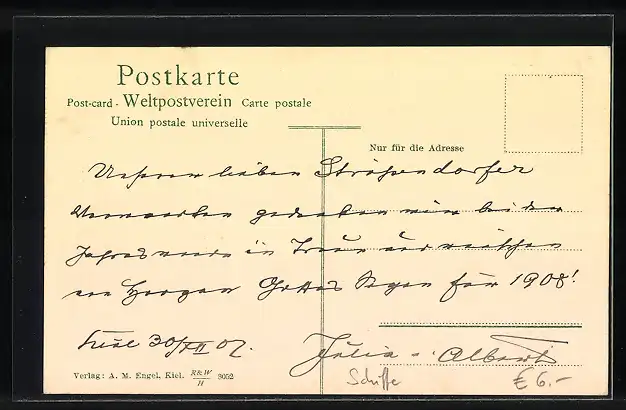 Postkarte
Post-card - Weltpostverein Carte postale
Union postale universelle
Nur für die Adresse
Unseren lieben Strößendorfer
Verwandten gedenken wir bei der
Jahreswende in Treue und wünschen
von Herzen Gottes Segen für 1908!
Kiel 30/XII 07.
Julia u. Albert
Verlag: A. M. Engel, Kiel. R&W/H 3052
Schiffe
€ 6.-